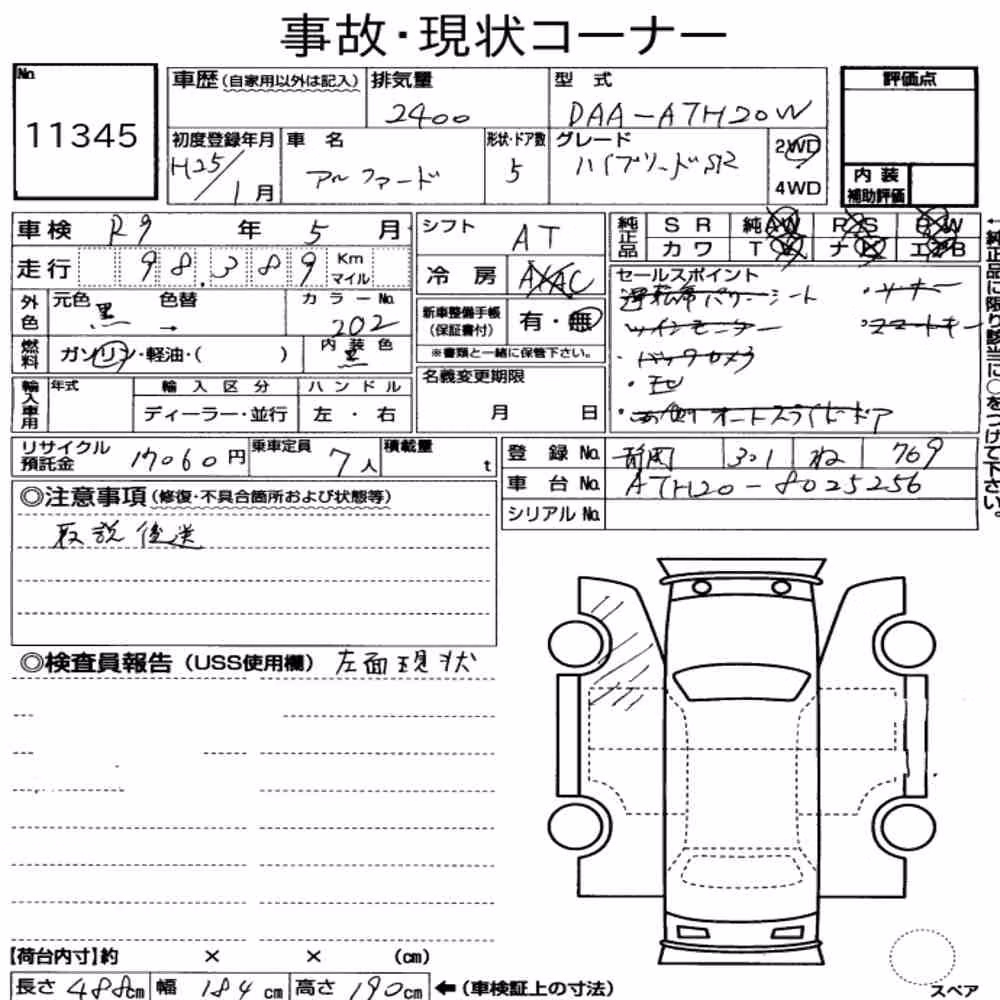 事故・現状コーナー
No.
11345
車歴(自家用以外は記入)
排気量
2400
型式
DAA-ATH20W
評価点
初度登録年月
H25/1月
車名
アルファード
形状・ドア数
5
グレード
ハイブリッドSR
2WD
4WD
内装
補助評価
車検 R9年 5月
走行 98,389 Km マイル
シフト
AT
冷房
AAC
純正品
SR 純AW R S W
カワ TV ナビ エアB
外色
元色 黒 色替 →
カラーNo.
202
燃料
ガソリン・軽油・( )
内装色
黒
新車整備手帳
(保証書付)
有・無
※書類と一緒に保管下さい。
セールスポイント
運転席パワーシート
・ツインモニター
・バックカメラ
・スマートキー
オートスライドドア
←純正品に限り該当に○をつけて下さい。
輸入車用
年式
輸入区分
ディーラー・並行
ハンドル
左・右
名義変更期限
月 日
リサイクル預託金 17060円
乗車定員 7人
積載量 t
登録No. 静岡 301 ね 769
車台No. ATH20-8025256
シリアルNo.
◎注意事項(修復・不具合箇所および状態等)
取説後送
◎検査員報告(USS使用欄) 左面現状
【荷台内寸】約 × × (cm)
長さ 488cm 幅 184cm 高さ 190cm ←(車検証上の寸法)
スペア